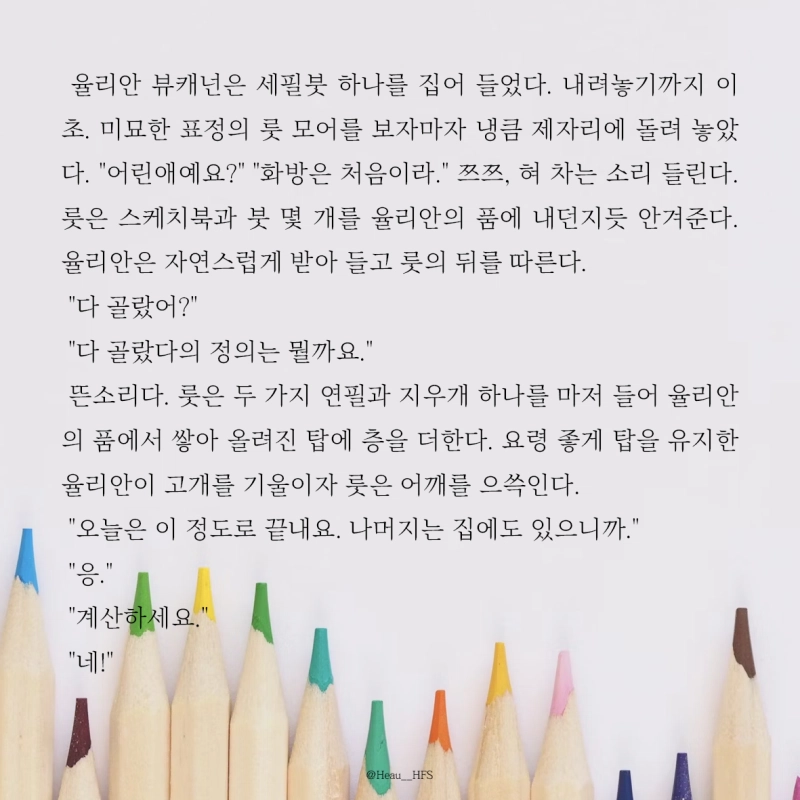 율리안 뷰캐넌은 세필붓 하나를 집어 들었다. 내려놓기까지 이
초. 미묘한 표정의 룻 모어를 보자마자 냉큼 제자리에 돌려 놓았
다. "어린애예요?" "화방은 처음이라." 쯔쯔, 혀 차는 소리 들린다.
룻은 스케치북과 붓 몇 개를 율리안의 품에 내던지듯 안겨준다.
율리안은 자연스럽게 받아 들고 룻의 뒤를 따른다.
"다 골랐어?"
"다 골랐다의 정의는 뭘까요."
뜬소리다. 룻은 두 가지 연필과 지우개 하나를 마저 들어 율리안
의 품에서 쌓아 올려진 탑에 층을 더한다. 요령 좋게 탑을 유지한
율리안이 고개를 기울이자 룻은 어깨를 으쓱인다.
"오늘은 이 정도로 끝내요. 나머지는 집에도 있으니까."
"응."
"계산하세요."
"네!"
@Heau__HFS